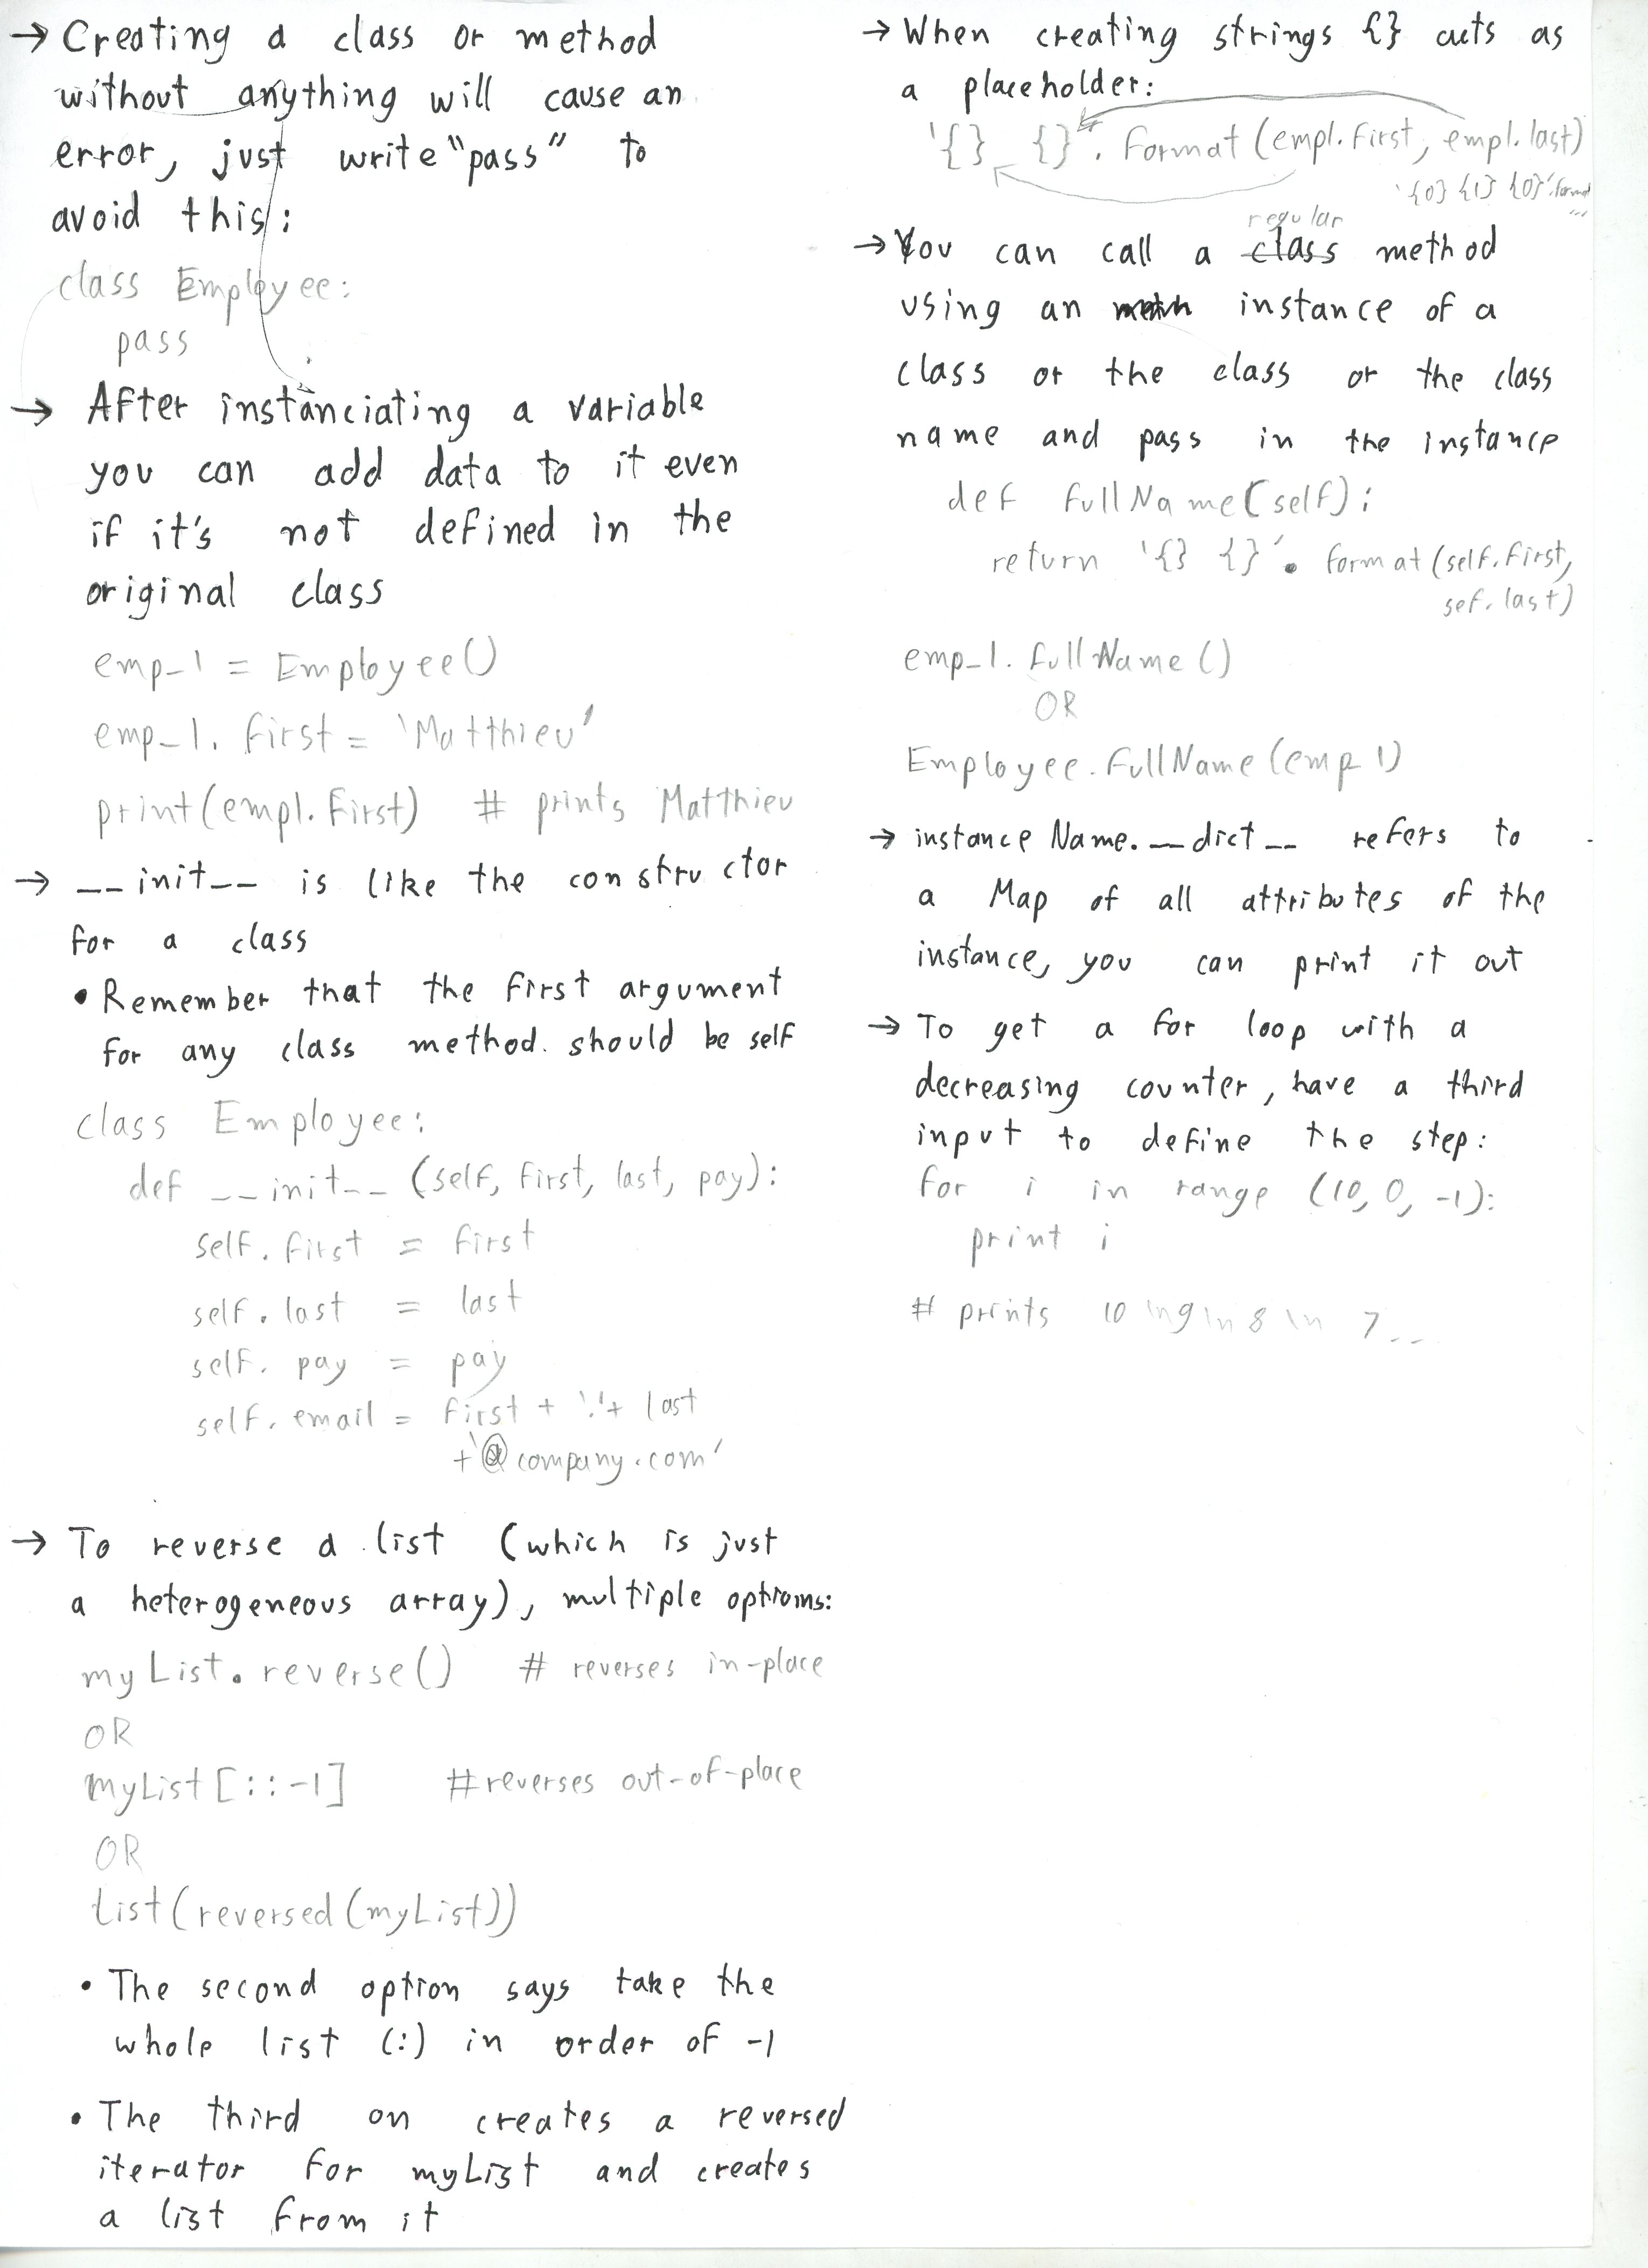 → Creating a class or method
without anything will cause an
error, just write "pass" to
avoid this:
class Employee:
pass
→ After instanciating a variable
you can add data to it even
if it's not defined in the
original class
emp_1 = Employee()
emp_1.first = 'Matthieu'
print(emp1.first) # prints Matthieu
→ __init__ is like the constructor
for a class
• Remember that the first argument
for any class method should be self
class Employee:
def __init__ (self, first, last, pay):
self.first = first
self.last = last
self.pay = pay
self.email = first + '.' + last
+ '@company.com'
→ To reverse a list (which is just
a heterogeneous array), multiple options:
myList.reverse() # reverses in-place
OR
myList[::-1] #reverses out-of-place
OR
list(reversed(myList))
• The second option says take the
whole list (:) in order of -1
• The third on creates a reversed
iterator for myList and creates
a list from it
→ When creating strings {} acts as
a placeholder:
'{} {}'.format(emp1.first, emp1.last)
'{0} {1} {0}'.format
...
regular
→ You can call a class method
using an instance of a
class or the class or the class
name and pass in the instance
def fullName(self):
return '{} {}'.format(self.first,
sef.last)
emp_1.fullName()
OR
Employee.fullName(emp_1)
→ instanceName.__dict__ refers to
a Map of all attributes of the
instance, you can print it out
→ To get a for loop with a
decreasing counter, have a third
input to define the step:
for i in range (10, 0, -1):
print i
# prints 10 \n 9 \n 8 \n 7...